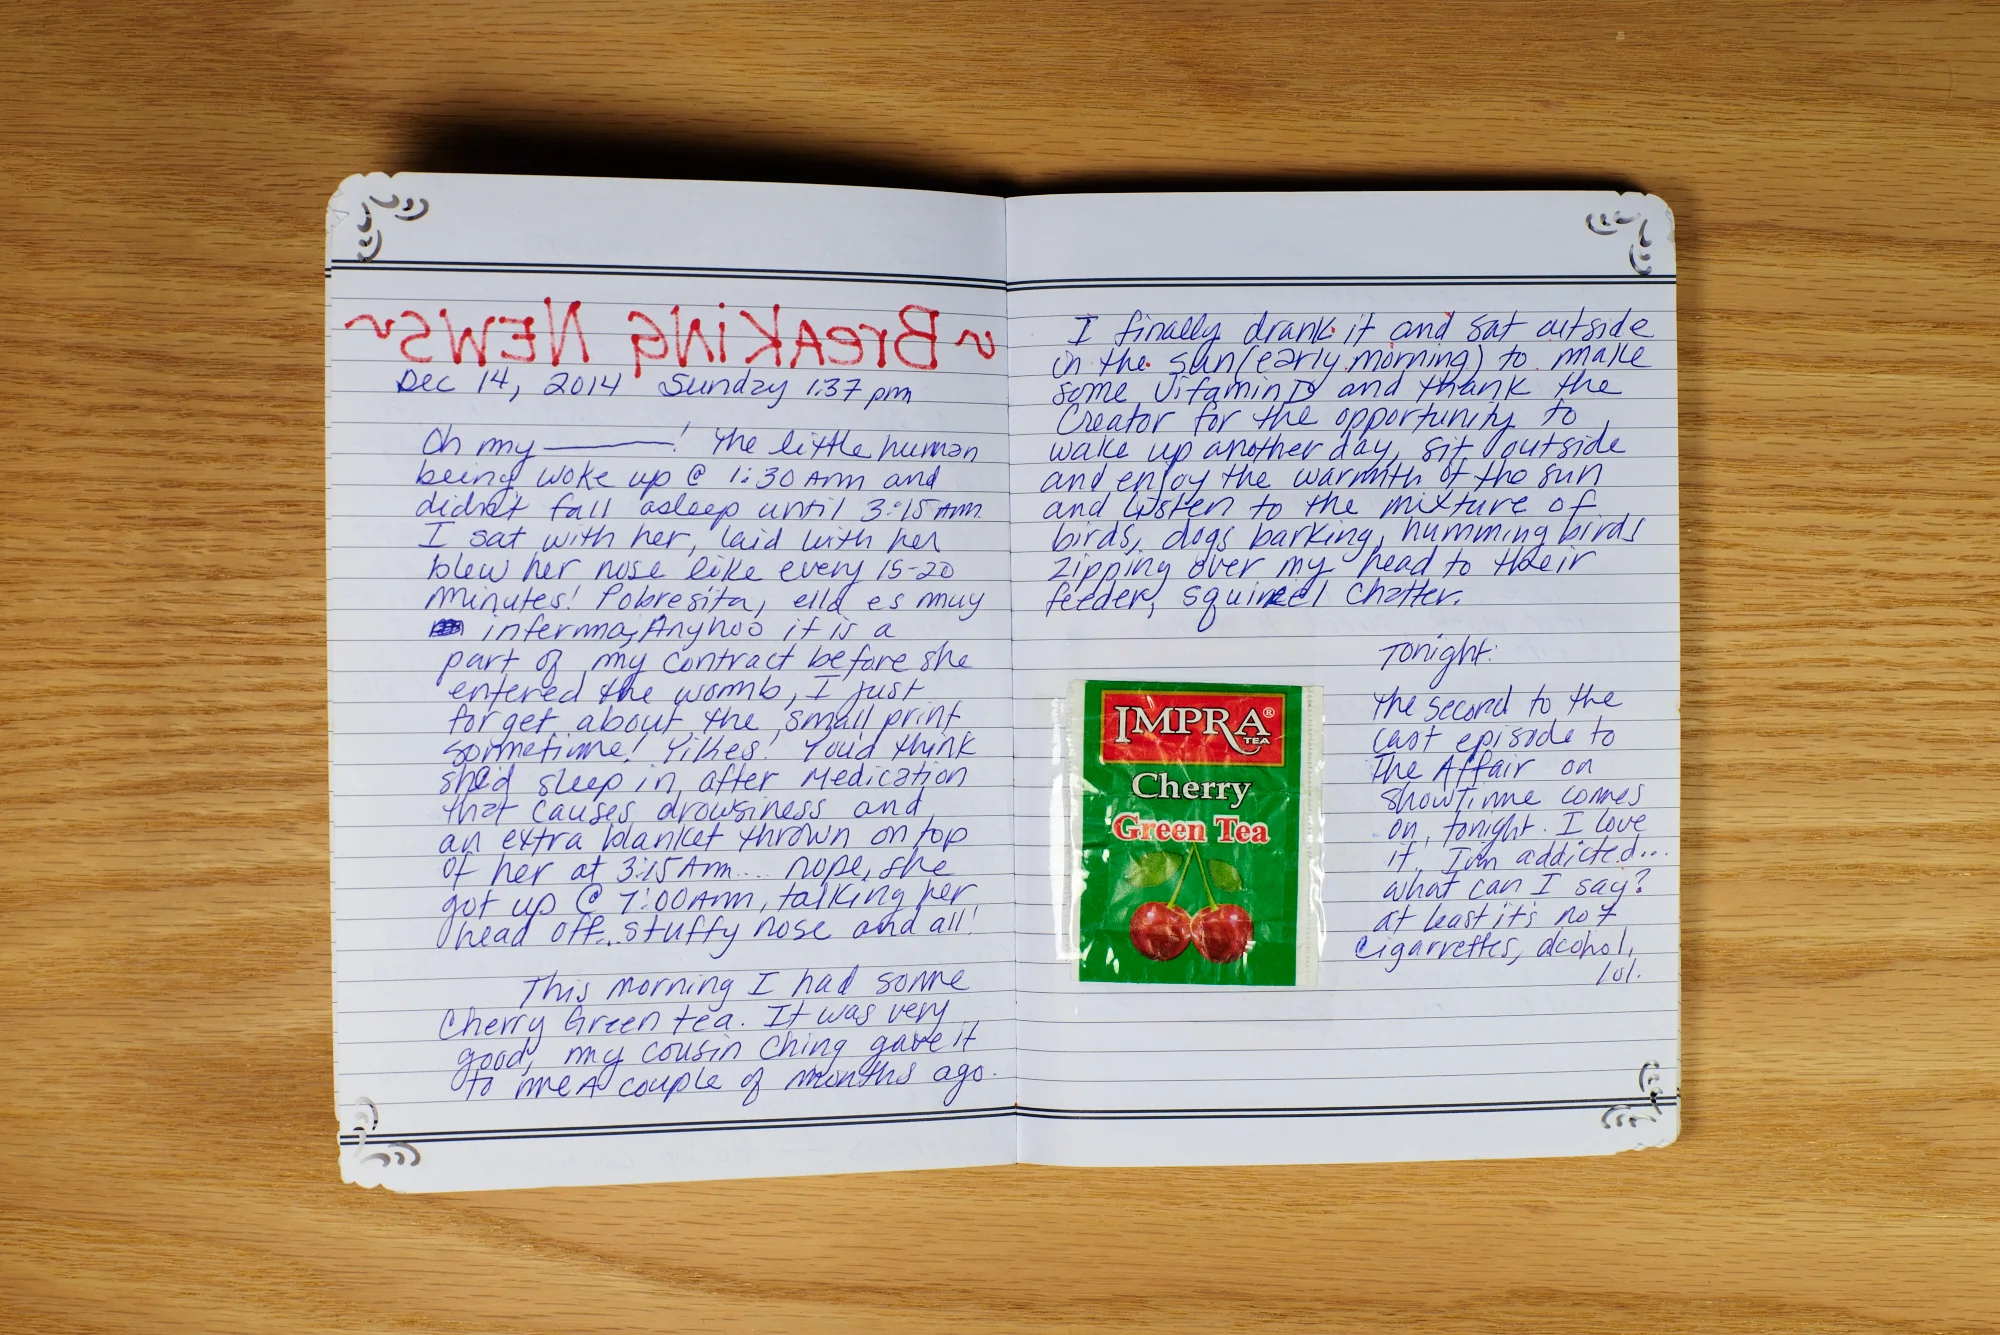 ~ BreaKiNG NEWS ~
Dec 14, 2014 Sunday 1:37 pm
Oh my ———! The little human
being woke up @ 1:30 Am and
didn't fall asleep until 3:15 Am.
I sat with her, laid with her
blew her nose like every 15-20
minutes! Pobresita, ella es muy
inferma, Anyhoo it is a
part of my contract before she
entered the womb, I just
forget about the small print
sometime! Yikes! Youd think
she'd sleep in after Medication
that causes drowsiness and
an extra blanket thrown on top
of her at 3:15 Am.... nope, she
got up @ 7:00 Am, talking her
head off... stuffy nose and all!
This morning I had some
Cherry Green tea. It was very
good, my cousin Ching gave it
to me A couple of months ago.
I finally drank it and sat outside
in the sun (early morning) to make
some Vitamin D and thank the
Creator for the opportunity to
wake up another day, sit outside
and enjoy the warmth of the sun
and listen to the mixture of
birds, dogs barking, humming birds
zipping over my head to their
feeder, squirrel chatter.
IMPRA®
TEA
Cherry
Green Tea
Tonight:
The second to the
last episode to
The Affair on
ShowTime comes
on, tonight. I love
it, I'm addicted...
what can I say?
at least it's not
cigarrettes, alcohol,
lol.